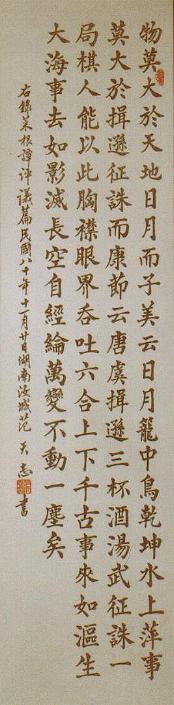 物莫大於天地日月而子美云日月籠中鳥乾坤水上萍事
莫大於揖遜征誅而康節云唐虞揖遜三杯酒湯武征誅一
局棋人能以此胸襟眼界吞吐六合上下千古事來如漚生
大海事去如影滅長空自經綸萬變不動一塵矣
右錄菜根譚評議篇民國八十年十一月廿日湖南汝城范天志書